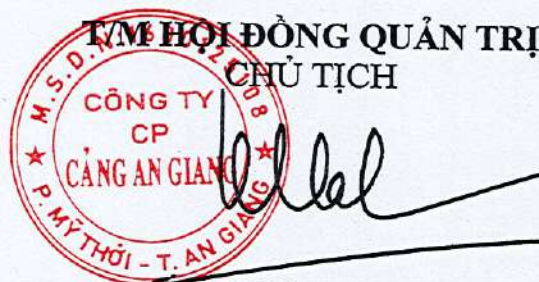 T/M HỘI ĐỒNG QUẢN TRỊ
CHỦ TỊCH
CÔNG TY
CP
CẢNG AN GIANG
P. MỸ THỚI - T. AN GIANG